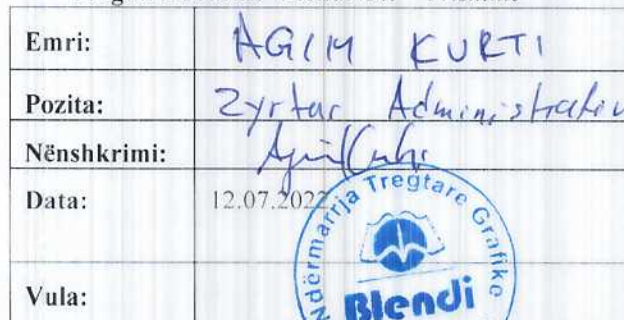 Emri: AGIM KURTI
Pozita: Zyrtar Administrativ
Nënshkrimi:
Data: 12.07.2022
Vula:
Ndërmarrja Tregtare Grafike
Blendi